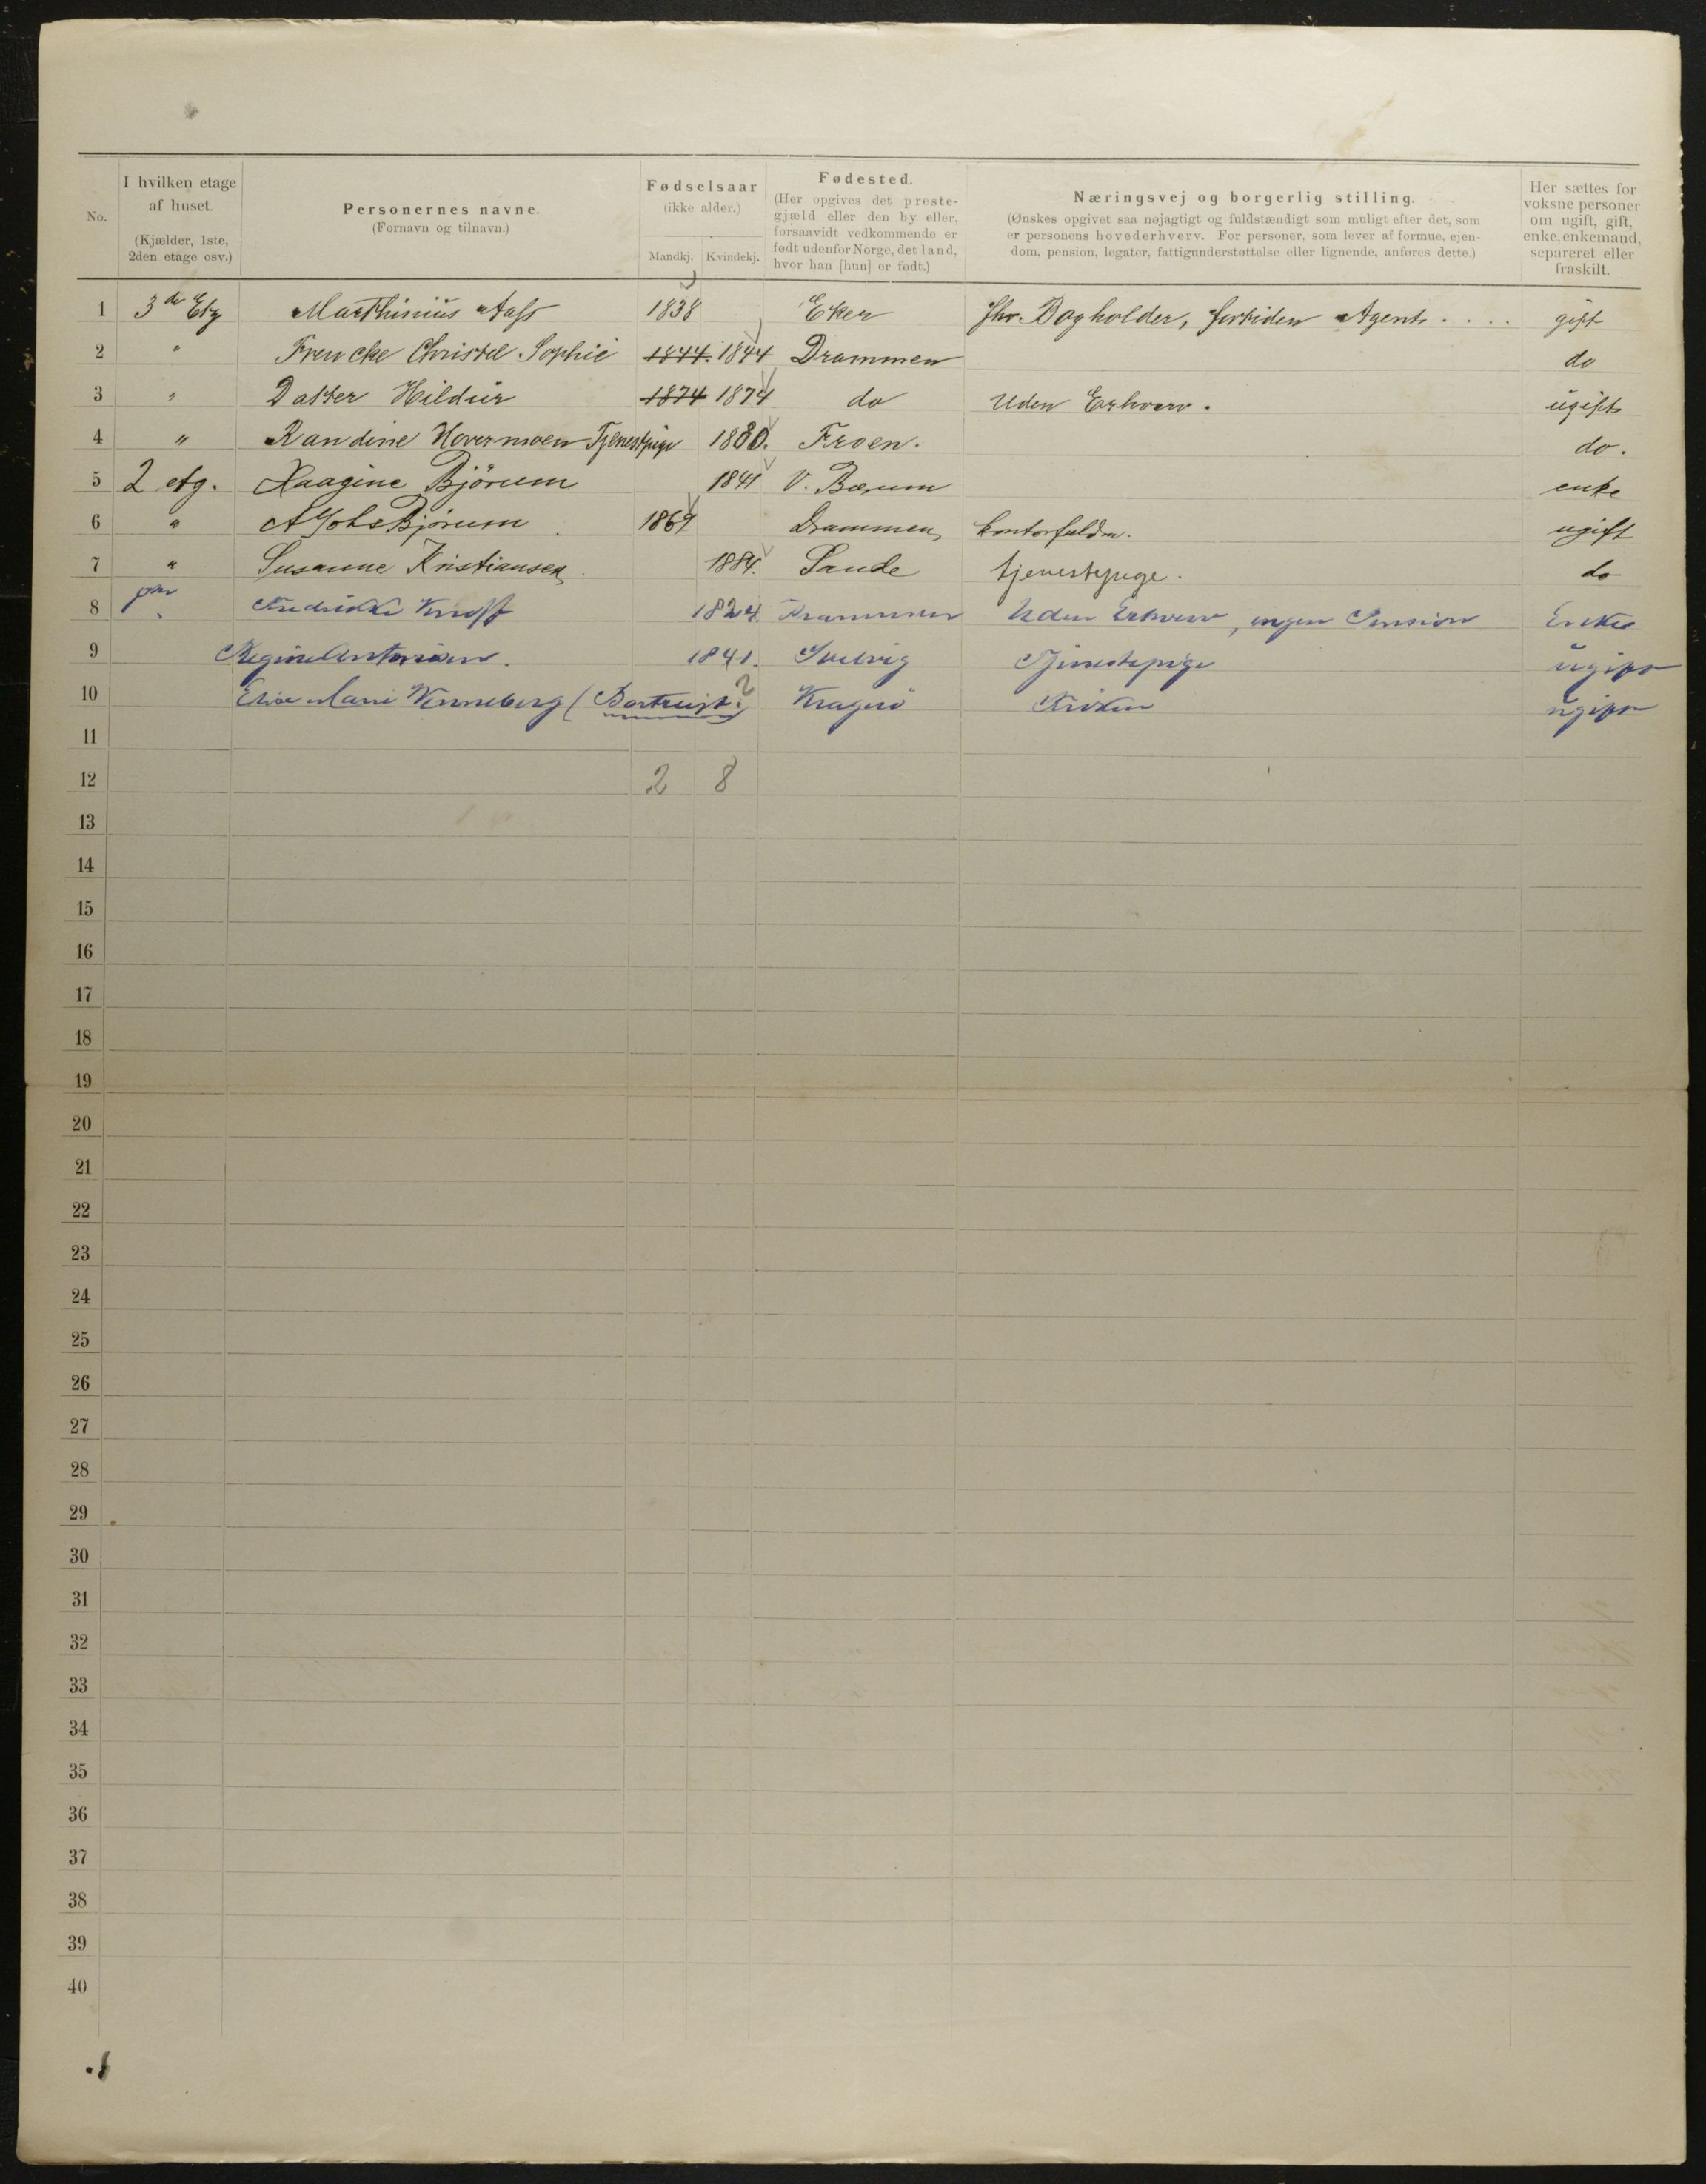 No.
I hvilken etage af huset.
(Kjælder, 1ste, 2den etage osv.)
Personernes navne.
(Fornavn og tilnavn.)
Fødselsaar
(ikke alder.)
Mandkj. Kvindekj.
Fødested.
(Her opgives det prestegjæld eller den by eller, forsaavidt vedkommende er født udenfor Norge, det land, hvor han [hun] er født.)
Næringsvej og borgerlig stilling.
(Ønskes opgivet saa nøjagtigt og fuldstændigt som muligt efter det, som er personens hovederhverv. For personer, som lever af formue, ejendom, pension, legater, fattigunderstøttelse eller lignende, anføres dette.)
Her sættes for voksne personer om ugift, gift, enke, enkemand, separeret eller fraskilt.
1 3de Etg Marthinius Aass 1838 Eker fhv. Bogholder, fortiden Agent . . . . gift
2 " Frencke Christel Sophie 1844. 1844 Drammen do
3 " Datter Hildur 1874 1874 do Uden Erhverv. ugift
4 " Randine Hovermoen Tjenestpige 1880. Froen. do.
5 2 etg. Haagine Bjørum 1841 V. Bærum enke
6 " A Johs Bjørum 1869 Drammen, kontorfuldm. ugift
7 " Susanne Kristiansen. 1884. Sande tjenestepige. do
8 " Fredrikke 1824. Drammen Uden Erhverv, ingen Pension Enke
9 Regine Antonisen. 1841. Svelvig Tjenestepige ugift
10 Elise Marie Wenneberg (Bortreist.) ? Kragerö Fröken ugift
11
12 2 8
13
14
15
16
17
18
19
20
21
22
23
24
25
26
27
28
29
30
31
32
33
34
35
36
37
38
39
40